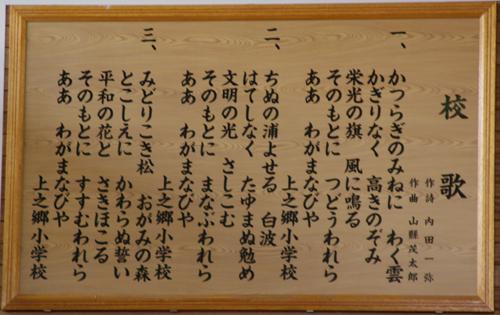 校歌
作詩 内田一弥
作曲 山縣茂太郎
一、かつらぎのみねに わく雲
かぎりなく 高きのぞみ
栄光の旗 風に鳴る
そのもとに つどうわれら
ああ わがまなびや
上之郷小学校
二、ちぬの浦よせる 白波
はてしなく たゆまぬ勉め
文明の光 さしこむ
そのもとに まなぶわれら
ああ わがまなびや
上之郷小学校
三、みどりこき松 おがみの森
とこしえに かわらぬ誓い
平和の花と さきほこる
そのもとに すすむわれら
ああ わがまなびや
上之郷小学校